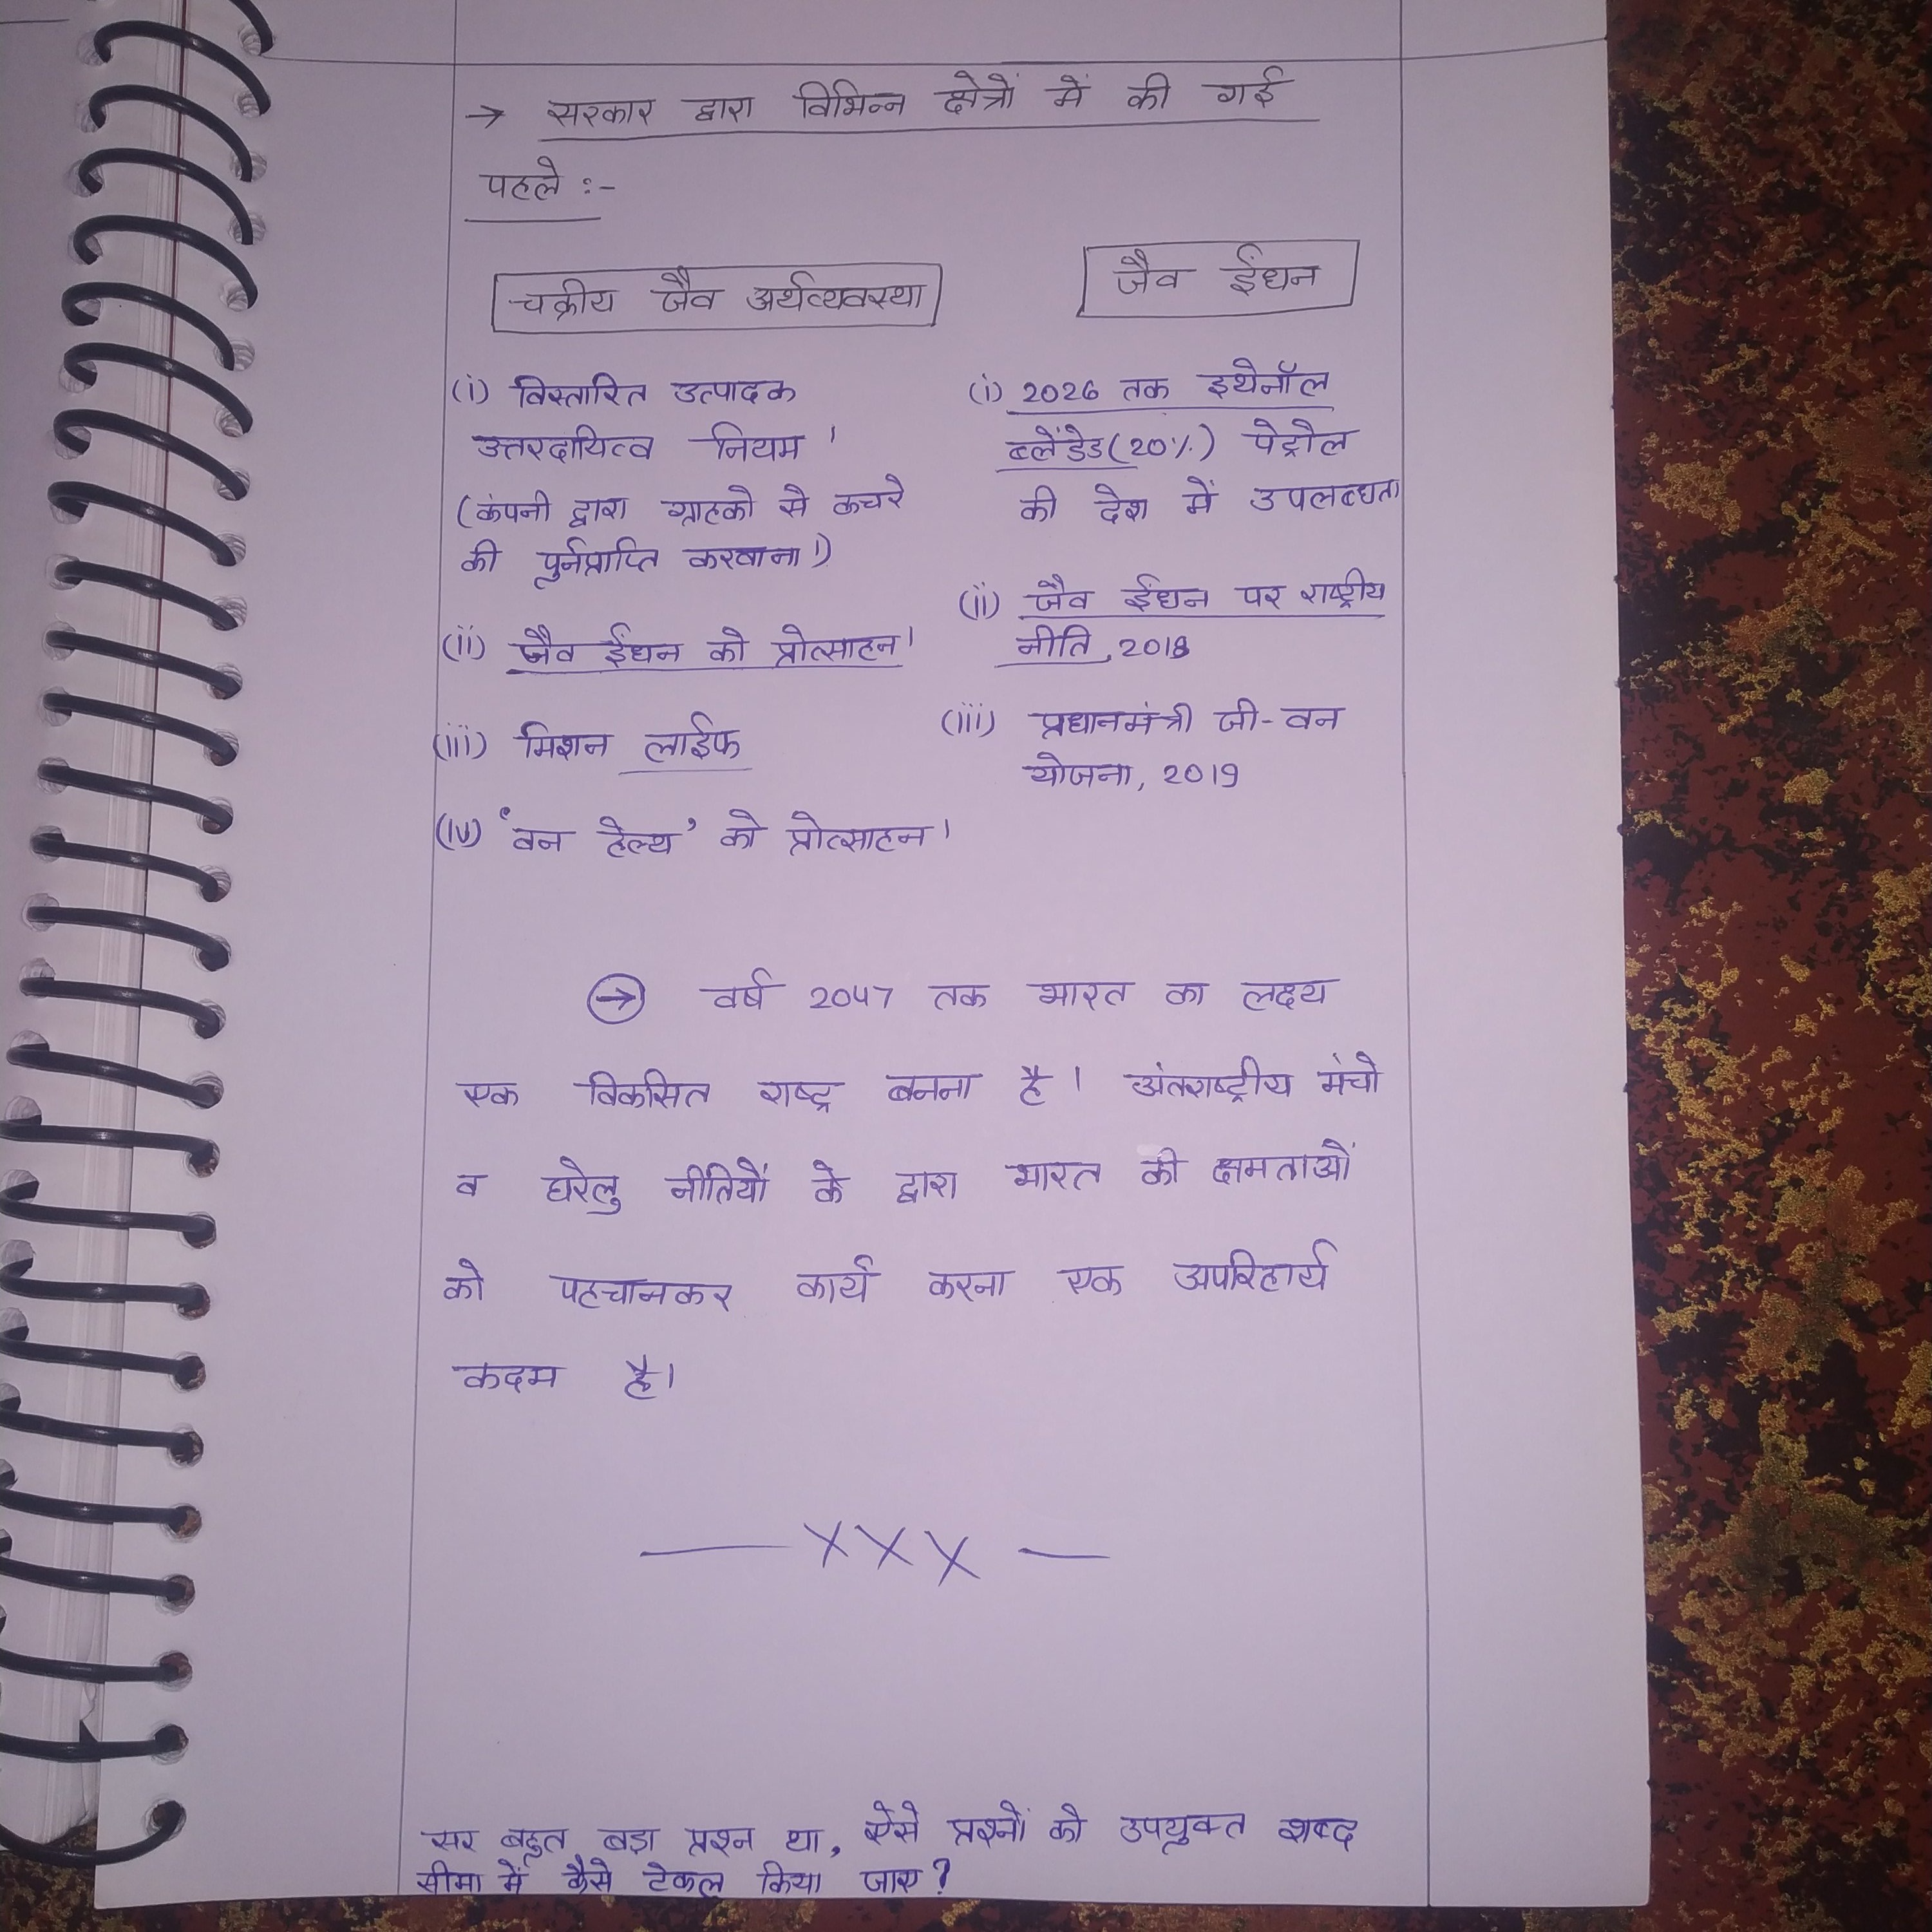 → सरकार द्वारा विभिन्न क्षेत्रों में की गई
पहले :-
चक्रीय जैव अर्थव्यवस्था
(i) विस्तारित उत्पादक
उत्तरदायित्व नियम।
(कंपनी द्वारा ग्राहको से कचरे
की पुर्नप्राप्ति करवाना।)
(ii) जैव ईंधन को प्रोत्साहन।
(iii) मिशन लाईफ
(iv) 'वन हेल्थ' को प्रोत्साहन।
जैव ईंधन
(i) 2026 तक इथेनॉल
ब्लेंडेड (20%) पेट्रोल
की देश में उपलब्धता
(ii) जैव ईंधन पर राष्ट्रीय
नीति, 2018
(iii) प्रधानमंत्री जी-वन
योजना, 2019
→ वर्ष 2047 तक भारत का लक्ष्य
एक विकसित राष्ट्र बनना है। अंतराष्ट्रीय मंचो
व घरेलु नीतियों के द्वारा भारत की क्षमताओं
को पहचानकर कार्य करना एक अपरिहार्य
कदम है।
— X X X —
सर बहुत बड़ा प्रश्न था, ऐसे प्रश्नों को उपयुक्त शब्द
सीमा में कैसे टेकल किया जाए?